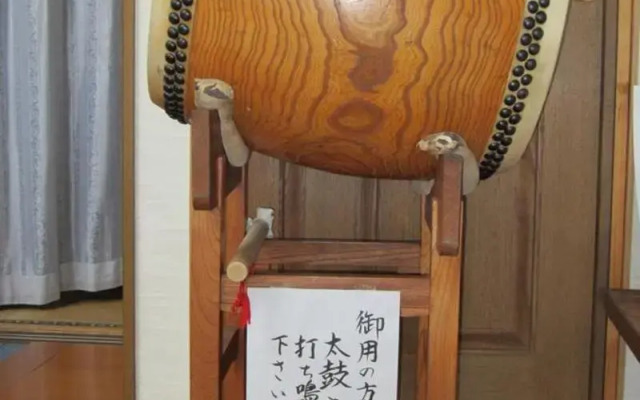 御用の方
太鼓
打ち鳴
下さい